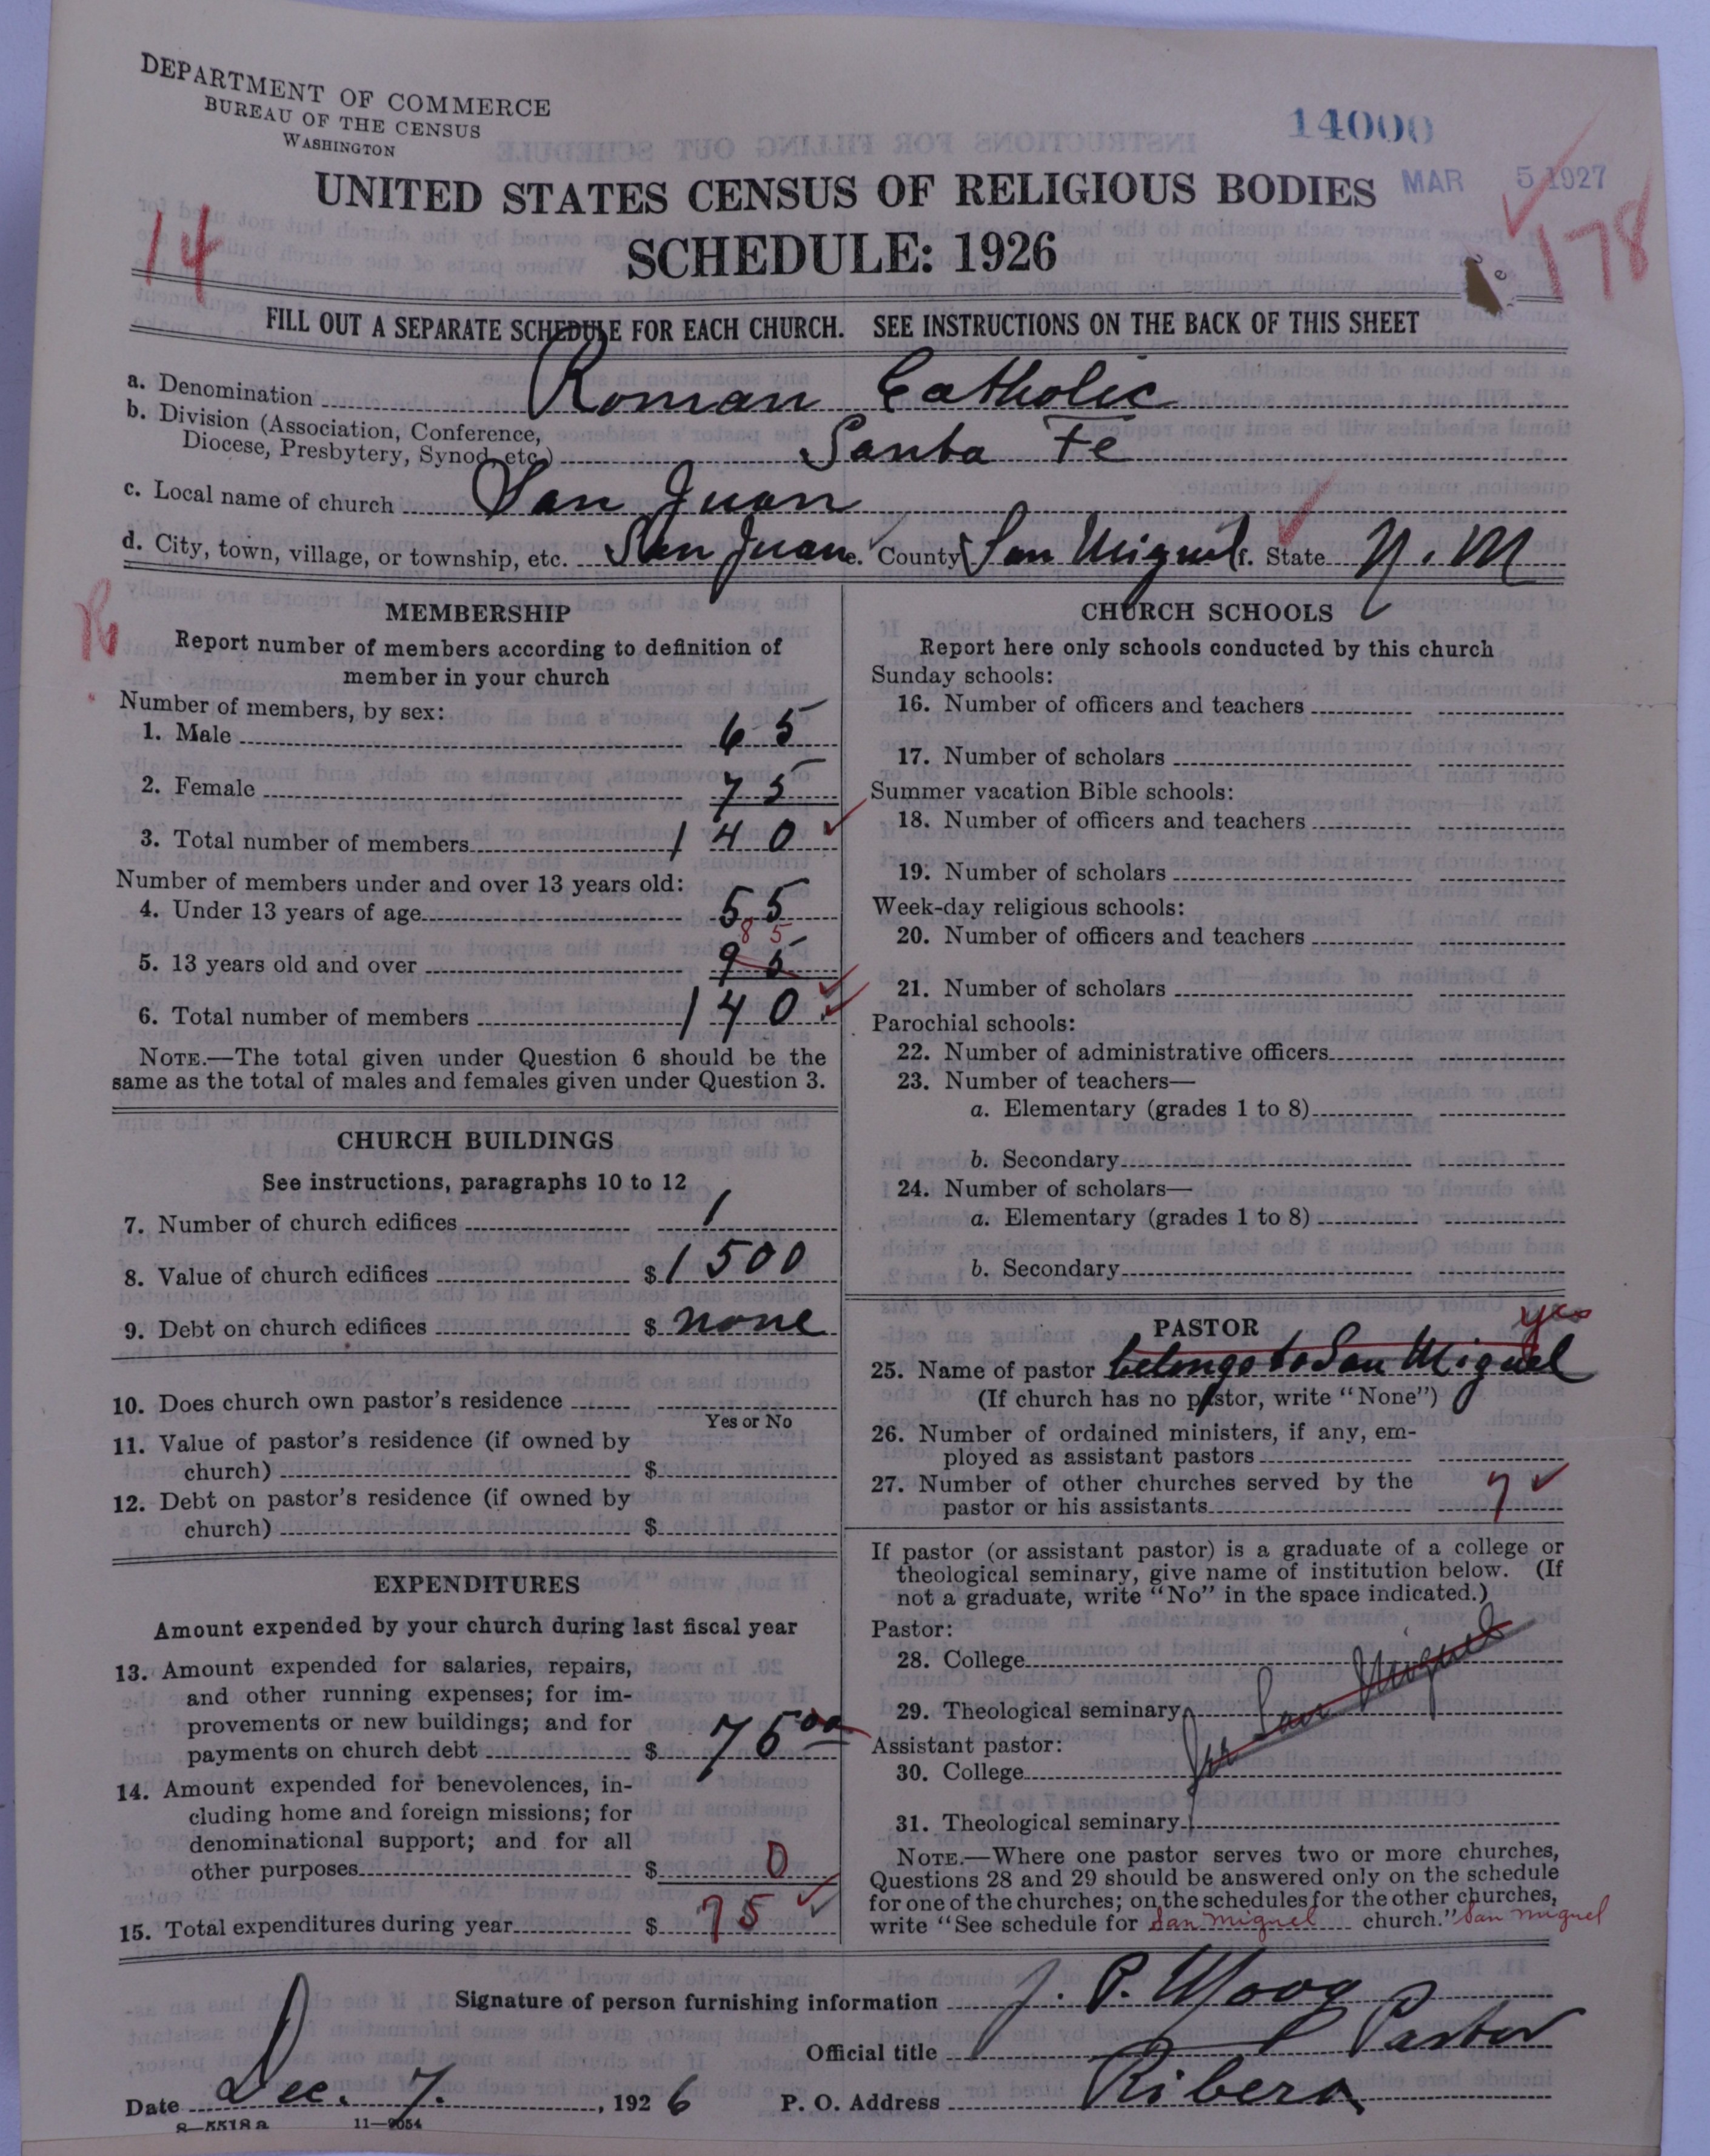 DEPARTMENT OF COMMERCE
BUREAU OF THE CENSUS
WASHINGTON
14000
MAR 5 1927
UNITED STATES CENSUS OF RELIGIOUS BODIES
SCHEDULE: 1926
14
178
FILL OUT A SEPARATE SCHEDULE FOR EACH CHURCH. SEE INSTRUCTIONS ON THE BACK OF THIS SHEET
a. Denomination Roman Catholic
b. Division (Association, Conference,
Diocese, Presbytery, Synod, etc.) Santa Fe
c. Local name of church San Juan
d. City, town, village, or township, etc. San Juan e. County San Miguel f. State N. M
MEMBERSHIP
Report number of members according to definition of
member in your church
Number of members, by sex:
1. Male 65
2. Female 75
3. Total number of members 140
Number of members under and over 13 years old:
4. Under 13 years of age 55
85
5. 13 years old and over 95
6. Total number of members 140
NOTE.—The total given under Question 6 should be the
same as the total of males and females given under Question 3.
CHURCH BUILDINGS
See instructions, paragraphs 10 to 12
7. Number of church edifices 1
8. Value of church edifices $ 1500
9. Debt on church edifices $ none
10. Does church own pastor's residence
Yes or No
11. Value of pastor's residence (if owned by
church) $
12. Debt on pastor's residence (if owned by
church) $
EXPENDITURES
Amount expended by your church during last fiscal year
13. Amount expended for salaries, repairs,
and other running expenses; for im-
provements or new buildings; and for
payments on church debt $ 75 00
14. Amount expended for benevolences, in-
cluding home and foreign missions; for
denominational support; and for all
other purposes $ 0
15. Total expenditures during year $ 75
CHURCH SCHOOLS
Report here only schools conducted by this church
Sunday schools:
16. Number of officers and teachers
17. Number of scholars
Summer vacation Bible schools:
18. Number of officers and teachers
19. Number of scholars
Week-day religious schools:
20. Number of officers and teachers
21. Number of scholars
Parochial schools:
22. Number of administrative officers
23. Number of teachers—
a. Elementary (grades 1 to 8)
b. Secondary
24. Number of scholars—
a. Elementary (grades 1 to 8)
b. Secondary
PASTOR
yes
25. Name of pastor belongs to San Miguel
(If church has no pastor, write "None")
26. Number of ordained ministers, if any, em-
ployed as assistant pastors
27. Number of other churches served by the
pastor or his assistants 7
If pastor (or assistant pastor) is a graduate of a college or
theological seminary, give name of institution below. (If
not a graduate, write "No" in the space indicated.)
Pastor:
28. College
29. Theological seminary
San Miguel
Assistant pastor:
30. College
31. Theological seminary
NOTE.—Where one pastor serves two or more churches,
Questions 28 and 29 should be answered only on the schedule
for one of the churches; on the schedules for the other churches,
write "See schedule for San Miguel church." San Miguel
Signature of person furnishing information J. P. Moog
Official title Pastor
Date Dec. 7. , 1926 P. O. Address Ribera
8—5518 a 11—9054